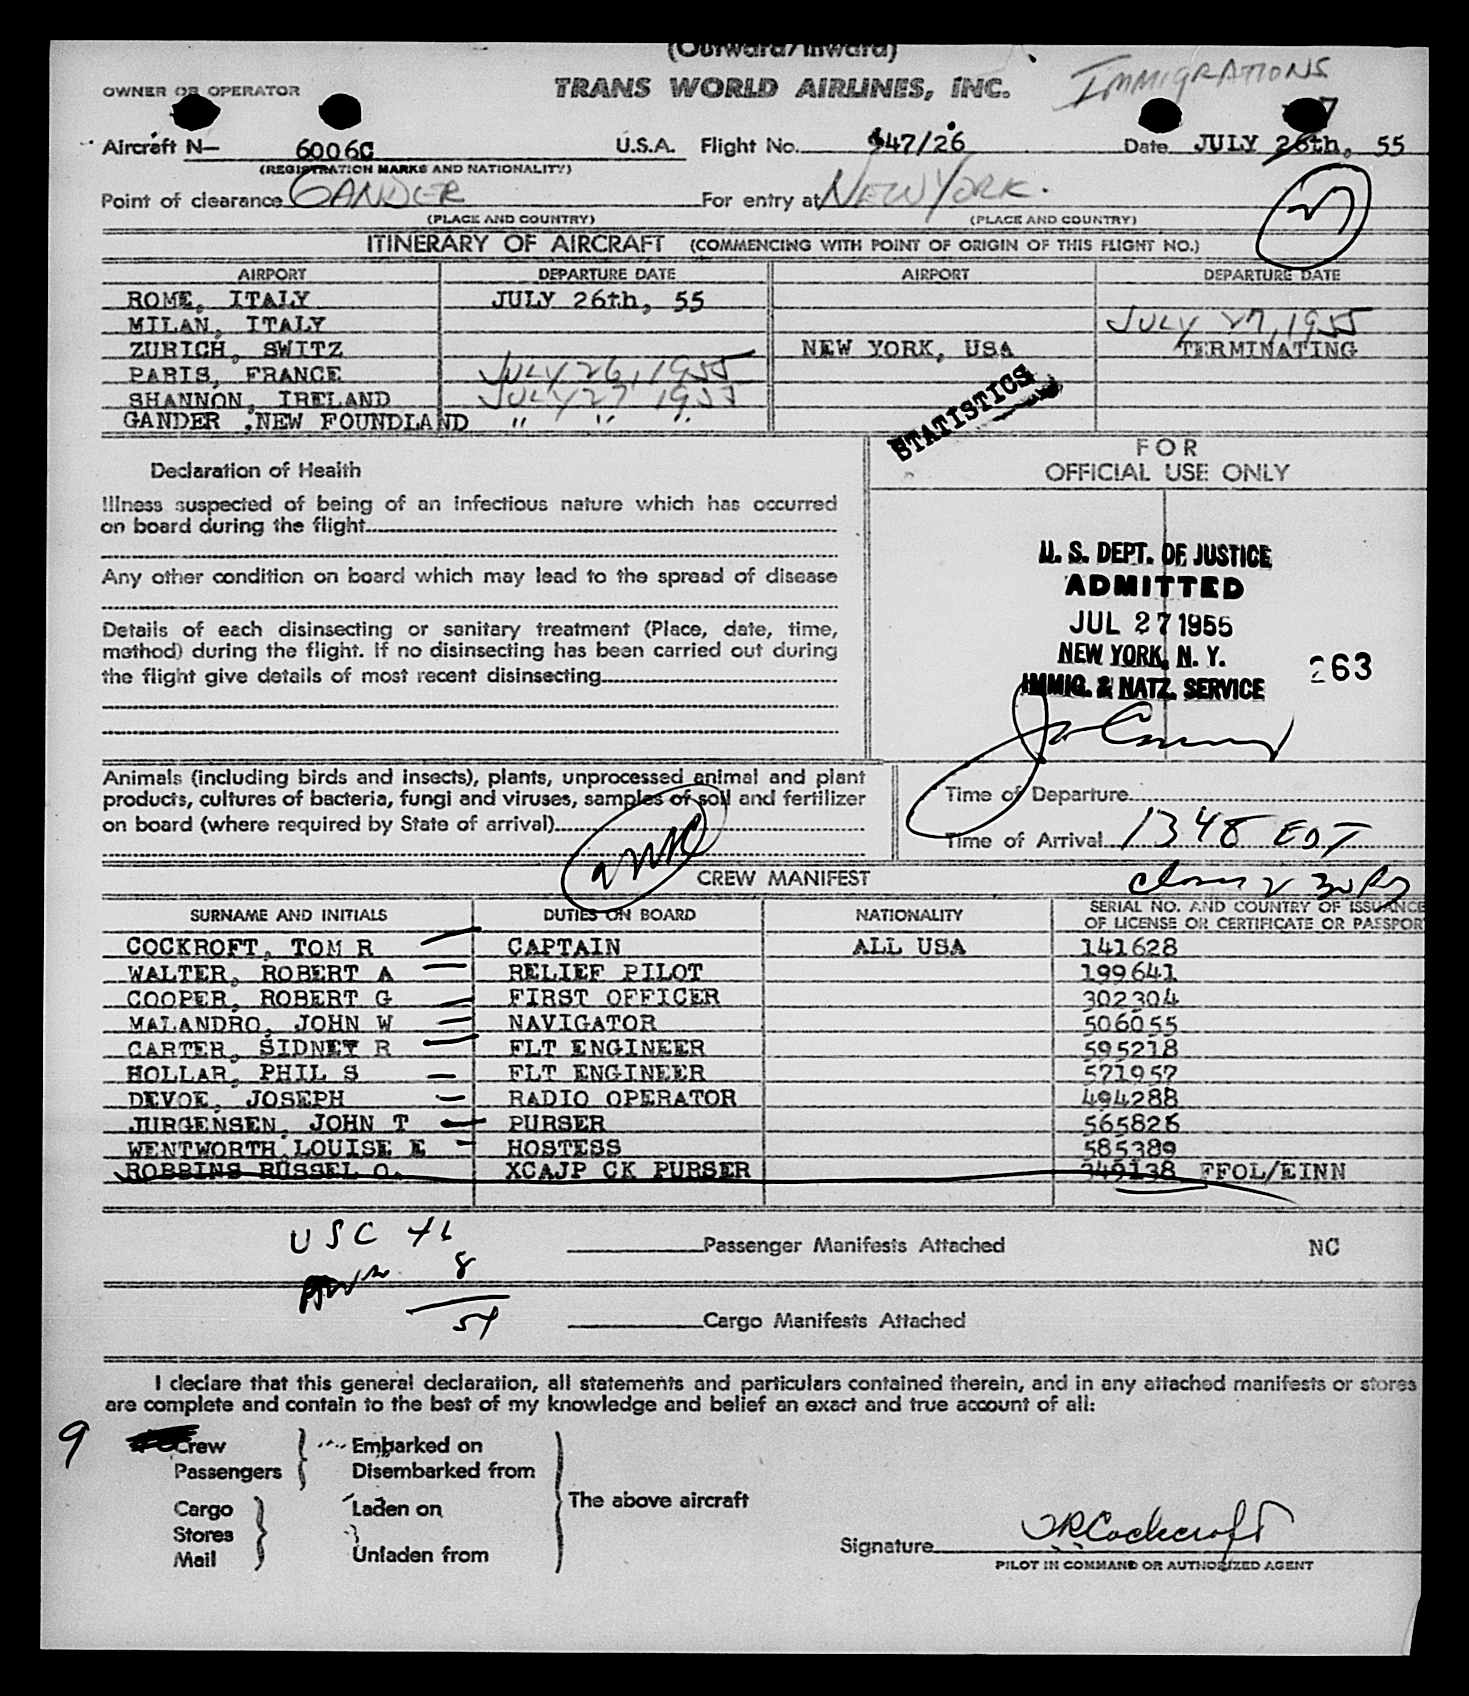 (Outward/Inward)
OWNER OR OPERATOR TRANS WORLD AIRLINES, INC. IMMIGRATIONS
Aircraft N— 6006C U.S.A. Flight No. 947/26 Date JULY 26th, 55
(REGISTRATION MARKS AND NATIONALITY) 7
Point of clearance GANDER For entry at NEW YORK.
(PLACE AND COUNTRY) (PLACE AND COUNTRY)
ITINERARY OF AIRCRAFT (COMMENCING WITH POINT OF ORIGIN OF THIS FLIGHT NO.)
AIRPORT DEPARTURE DATE AIRPORT DEPARTURE DATE
ROME, ITALY JULY 26th, 55
MILAN, ITALY JULY 27, 1955
ZURICH, SWITZ NEW YORK, USA TERMINATING
PARIS, FRANCE JULY 26, 1955
SHANNON, IRELAND JULY 27 1955
GANDER .NEW FOUNDLAND " " "
STATISTICS
FOR
OFFICIAL USE ONLY
Declaration of Health
Illness suspected of being of an infectious nature which has occurred
on board during the flight
Any other condition on board which may lead to the spread of disease
Details of each disinsecting or sanitary treatment (Place, date, time,
method) during the flight. If no disinsecting has been carried out during
the flight give details of most recent disinsecting
U. S. DEPT. OF JUSTICE
ADMITTED
JUL 27 1955
NEW YORK, N. Y.
IMMIG. & NATZ. SERVICE
263
Animals (including birds and insects), plants, unprocessed animal and plant
products, cultures of bacteria, fungi and viruses, samples of soil and fertilizer
on board (where required by State of arrival)
Time of Departure
Time of Arrival 1348 EDT
CREW MANIFEST
SURNAME AND INITIALS DUTIES ON BOARD NATIONALITY SERIAL NO. AND COUNTRY OF ISSUANCE
OF LICENSE OR CERTIFICATE OR PASSPOR
COCKROFT, TOM R CAPTAIN ALL USA 141628
WALTER, ROBERT A RELIEF PILOT 199641
COOPER, ROBERT G FIRST OFFICER 302304
MALANDRO, JOHN W NAVIGATOR 506055
CARTER, SIDNEY R FLT ENGINEER 595218
HOLLAR, PHIL S FLT ENGINEER 571957
DEVOE, JOSEPH RADIO OPERATOR 494288
JURGENSEN, JOHN T PURSER 565826
WENTWORTH,LOUISE E HOSTESS 585389
ROBBINS RUSSEL O. XCAJP CK PURSER 349138 FFOL/EINN
USC 46
8
54
Passenger Manifests Attached NC
Cargo Manifests Attached
I declare that this general declaration, all statements and particulars contained therein, and in any attached manifests or stores
are complete and contain to the best of my knowledge and belief an exact and true account of all:
9 Crew Embarked on
Passengers Disembarked from
The above aircraft
Cargo Laden on
Stores
Mail Unladen from
Signature TRCockcroft
PILOT IN COMMAND OR AUTHORIZED AGENT